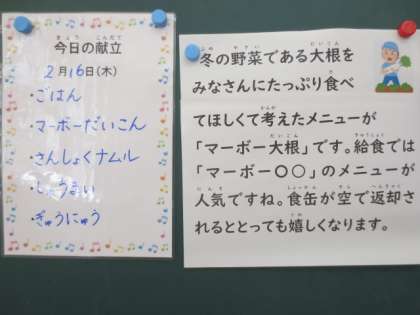 今日の献立
2月16日(木)
・ごはん
・マーボーだいこん
・さんしょくナムル
・しゅうまい
・ぎゅうにゅう
冬の野菜である大根を
みなさんにたっぷり食べ
てほしくて考えたメニューが
「マーボー大根」です。給食では
「マーボー〇〇」のメニューが
人気ですね。食缶が空で返却さ
れるととっても嬉しくなります。